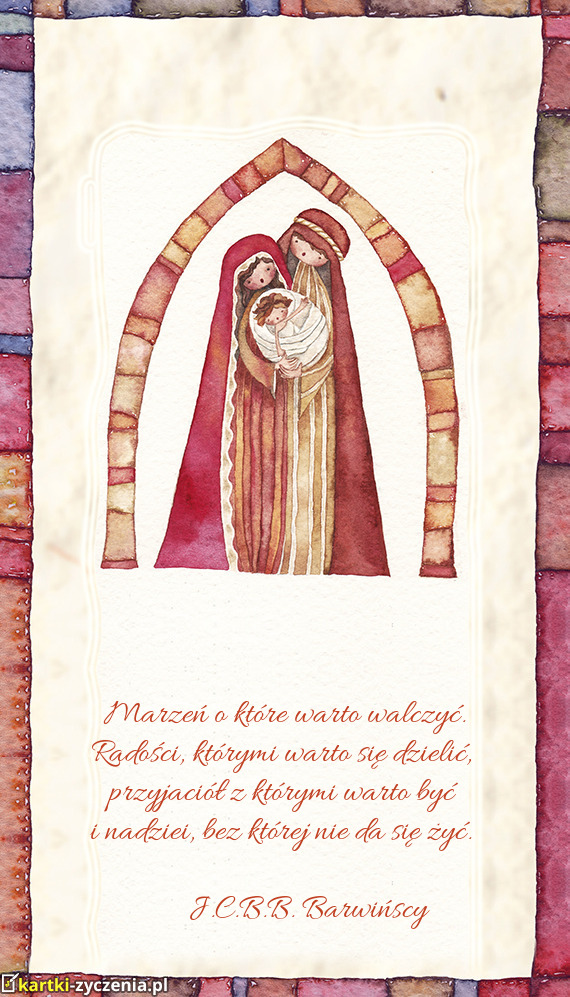 Marzeń o które warto walczyć.
Radości, którymi warto się dzielić,
przyjaciół z którymi warto być
i nadziei, bez której nie da się żyć.
J.C.B.B. Barwińscy
kartki-zyczenia.pl